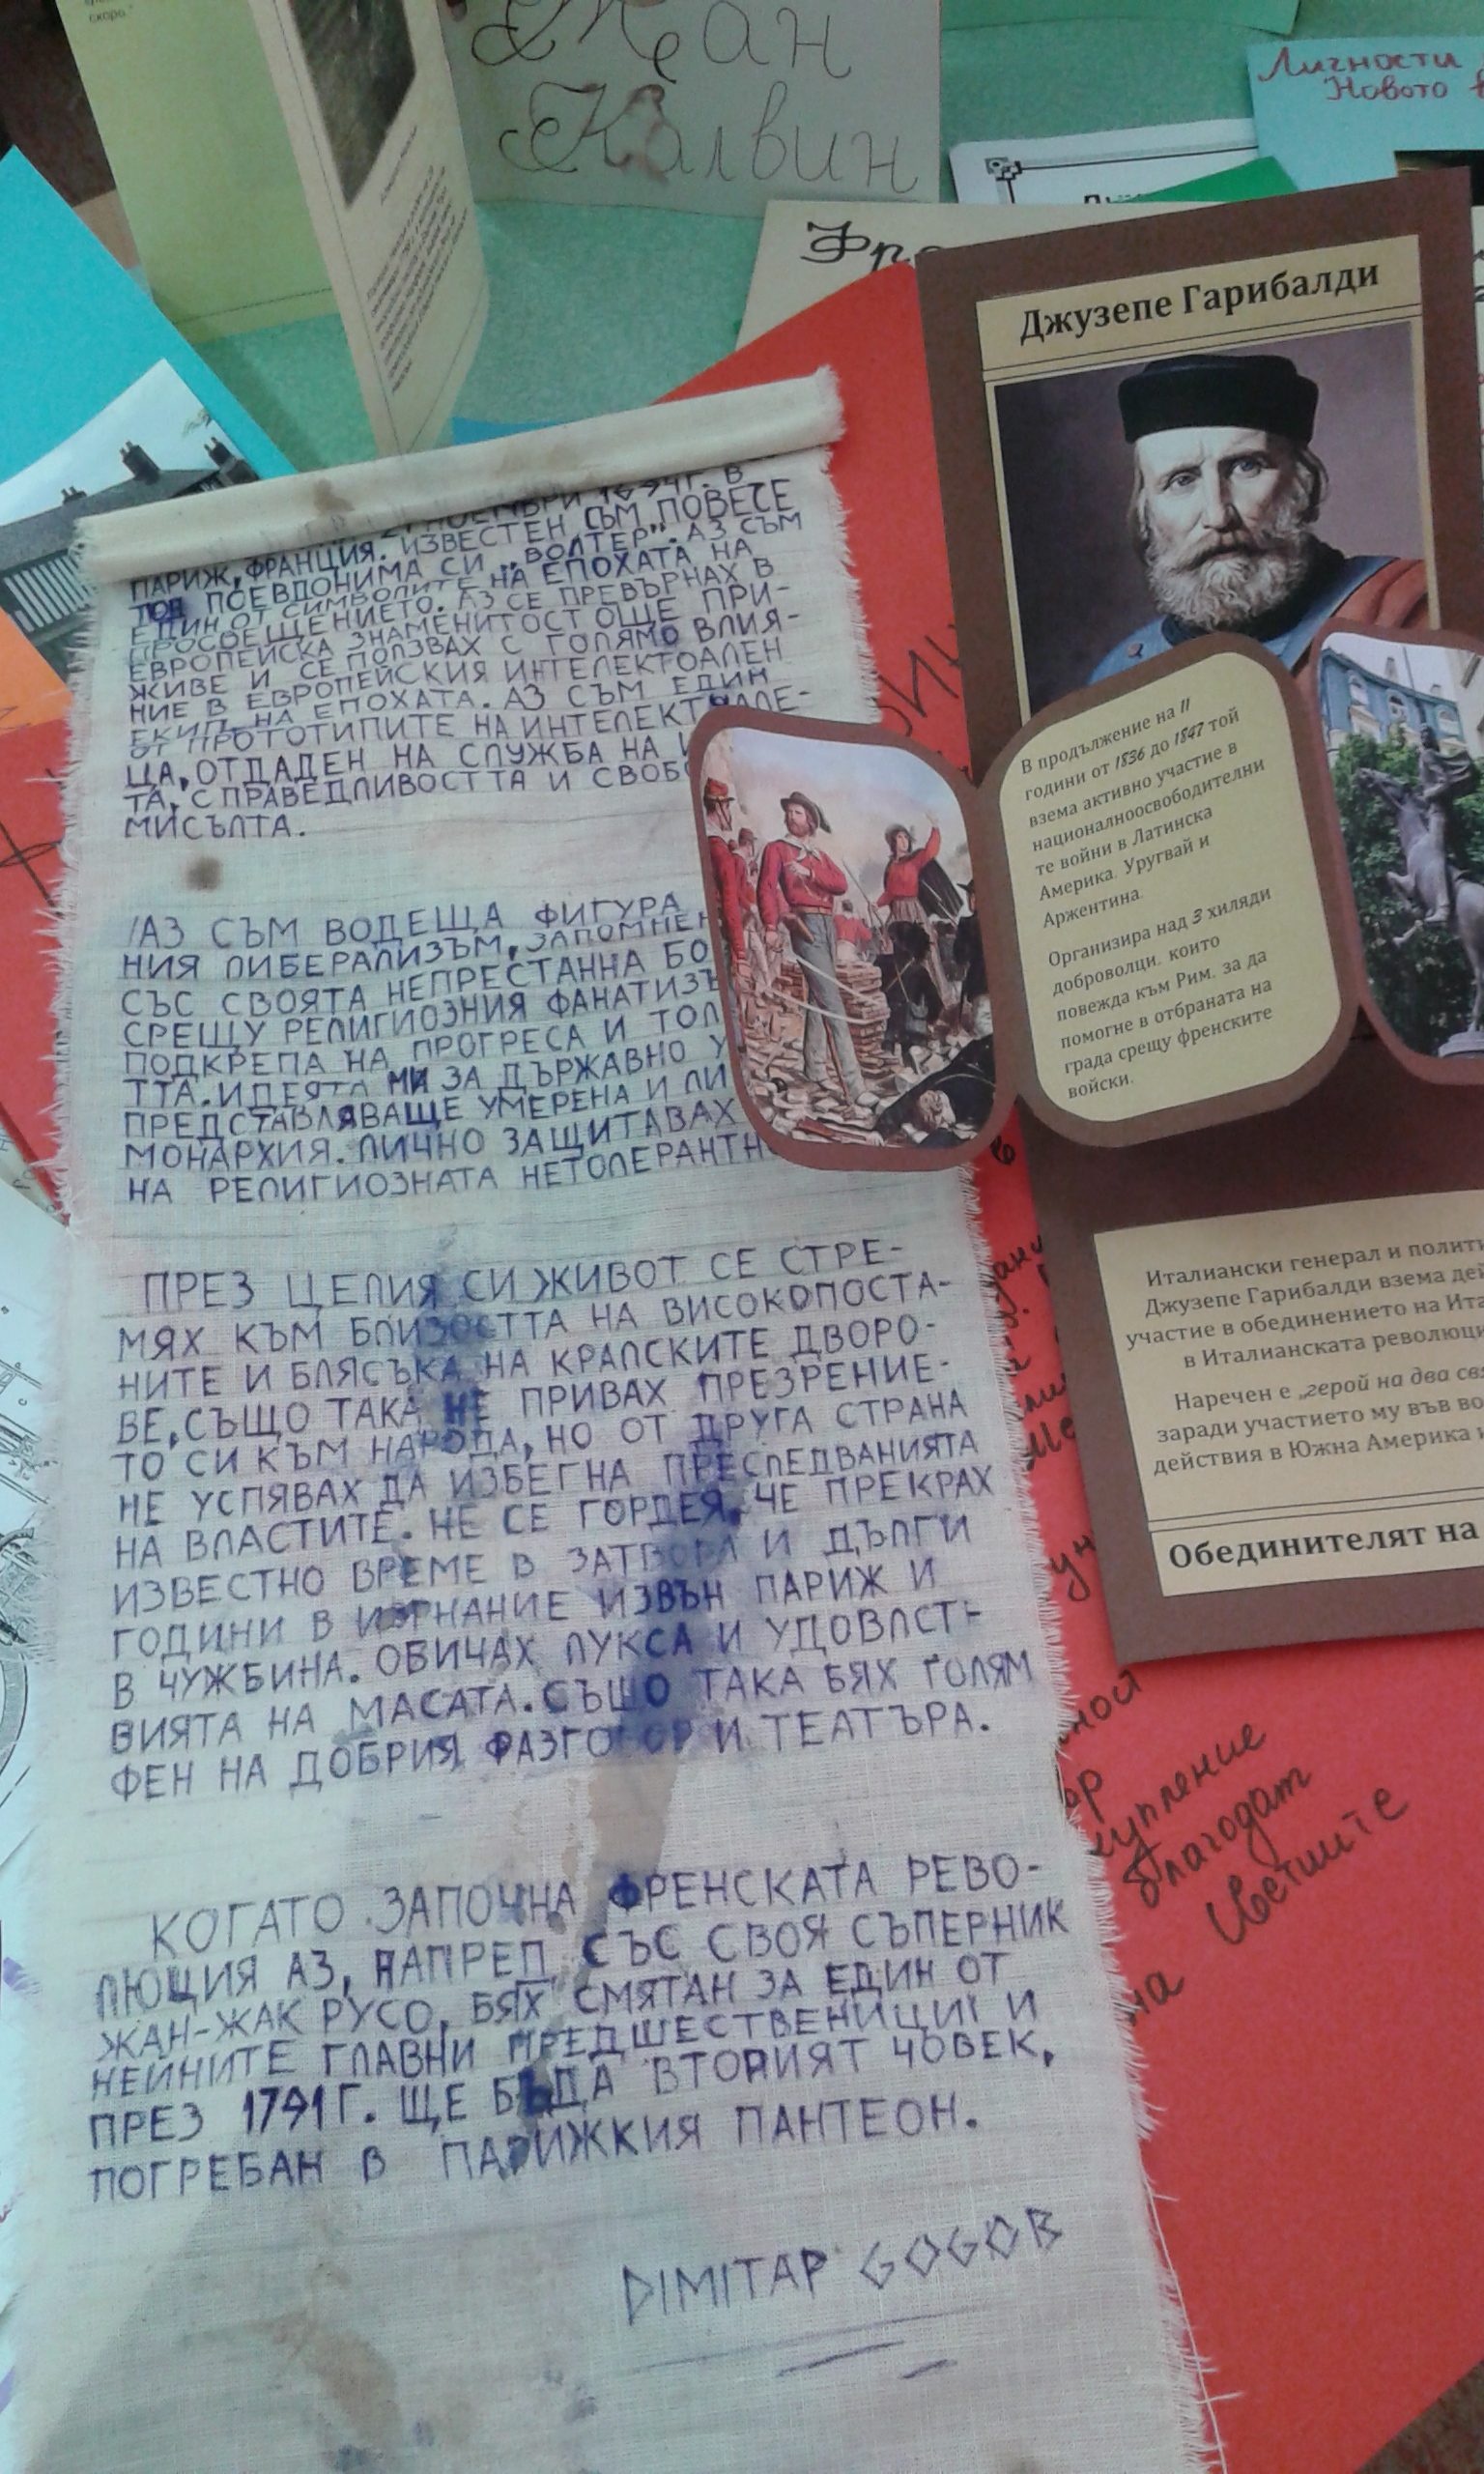 скоро."
Жан
Калвин
Личности
Новото
Джузепе Гарибалди
НОЕМВРИ 1694Г. В
ПАРИЖ, ФРАНЦИЯ. ИЗВЕСТЕН СЪМ ПОВЕЧЕ
ПОД ПСЕВДОНИМА СИ „ВОЛТЕР". АЗ СЪМ
ЕДИН ОТ СИМВОЛИТЕ НА ЕПОХАТА НА
ПРОСВЕЩЕНИЕТО. АЗ СЕ ПРЕВЪРНАХ В
ЕВРОПЕЙСКА ЗНАМЕНИТОСТ ОЩЕ ПРИ-
ЖИВЕ И СЕ ПОЛЗВАХ С ГОЛЯМО ВЛИЯ-
НИЕ В ЕВРОПЕЙСКИЯ ИНТЕЛЕКТОАЛЕН
ЕКИП НА ЕПОХАТА. АЗ СЪМ ЕДИН
ОТ ПРОТОТИПИТЕ НА ИНТЕЛЕКТУАЛЕ-
ЦА, ОТДАДЕН НА СЛУЖБА НА
ТА, СПРАВЕДЛИВОСТТА И СВОБО
МИСЪЛТА.
АЗ СЪМ ВОДЕЩА ФИГУРА
НИЯ ЛИБЕРАЛИЗЪМ, ЗАПОМНЕН
СЪС СВОЯТА НЕПРЕСТАННА БО
СРЕЩУ РЕЛИГИОЗНИЯ ФАНАТИЗЪ
ПОДКРЕПА НА ПРОГРЕСА И ТОЛ
ТТА. ИДЕЯТА МИ ЗА ДЪРЖАВНО У
ПРЕДСТАВЛЯВАЩЕ УМЕРЕНА И ЛИ
МОНАРХИЯ. ЛИЧНО ЗАЩИТАВАХ
НА РЕЛИГИОЗНАТА НЕТОЛЕРАНТН
ПРЕЗ ЦЕЛИЯ СИ ЖИВОТ СЕ СТРЕ-
МЯХ КЪМ БЛИЗОСТТА НА ВИСОКОПОСТА-
НИТЕ И БЛЯСЪКА НА КРАЛСКИТЕ ДВОРО-
ВЕ, СЪЩО ТАКА НЕ ПРИВАХ ПРЕЗРЕНИЕ-
ТО СИ КЪМ НАРОДА, НО ОТ ДРУГА СТРАНА
НЕ УСПЯВАХ ДА ИЗБЕГНА ПРЕСЛЕДВАНИЯТА
НА ВЛАСТИТЕ. НЕ СЕ ГОРДЕЯ, ЧЕ ПРЕКРАХ
ИЗВЕСТНО ВРЕМЕ В ЗАТВОРА И ДЪЛГИ
ГОДИНИ В ИЗГНАНИЕ ИЗВЪН ПАРИЖ И
В ЧУЖБИНА. ОБИЧАХ ЛУКСА И УДОВЛСТ-
ВИЯТА НА МАСАТА. СЪЩО ТАКА БЯХ ГОЛЯМ
ФЕН НА ДОБРИЯ РАЗГОВОР И ТЕАТЪРА.
КОГАТО ЗАПОЧНА ФРЕНСКАТА РЕВО-
ЛЮЦИЯ АЗ, НАПРЕД СЪС СВОЯ СЪПЕРНИК
ЖАН-ЖАК РУСО, БЯХ СМЯТАН ЗА ЕДИН ОТ
НЕЙНИТЕ ГЛАВНИ ПРЕДШЕСТВЕНИЦИ И
ПРЕЗ 1791Г. ЩЕ БЪДА ВТОРИЯТ ЧОВЕК,
ПОГРЕБАН В ПАРИЖКИЯ ПАНТЕОН.
DIMITAP GOGOB
В продължение на 11
години от 1836 до 1847 той
взема активно участие в
националноосвободителни
те войни в Латинска
Америка. Уругвай и
Аржентина.
Организира над 3 хиляди
доброволци, които
повежда към Рим, за да
помогне в отбраната на
града срещу френските
войски.
Италиански генерал и полити
Джузепе Гарибалди взема дей
участие в обединението на Ита
в Италианската революци
Наречен е „герой на два свя
заради участието му във во
действия в Южна Америка и
Обединителят на
купление
благодат
Цветците
на